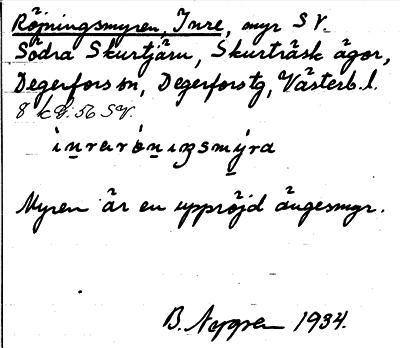 Röjningsmyren, Inre, myr SV.
Södra Skurtjärn, Skurträsk ägor,
Degerfors sn, Degerforstg, Västerb. l.
8 kbl. 56 SV.
Myren är en uppröjd ängesmyr.
B. Nygren 1934.